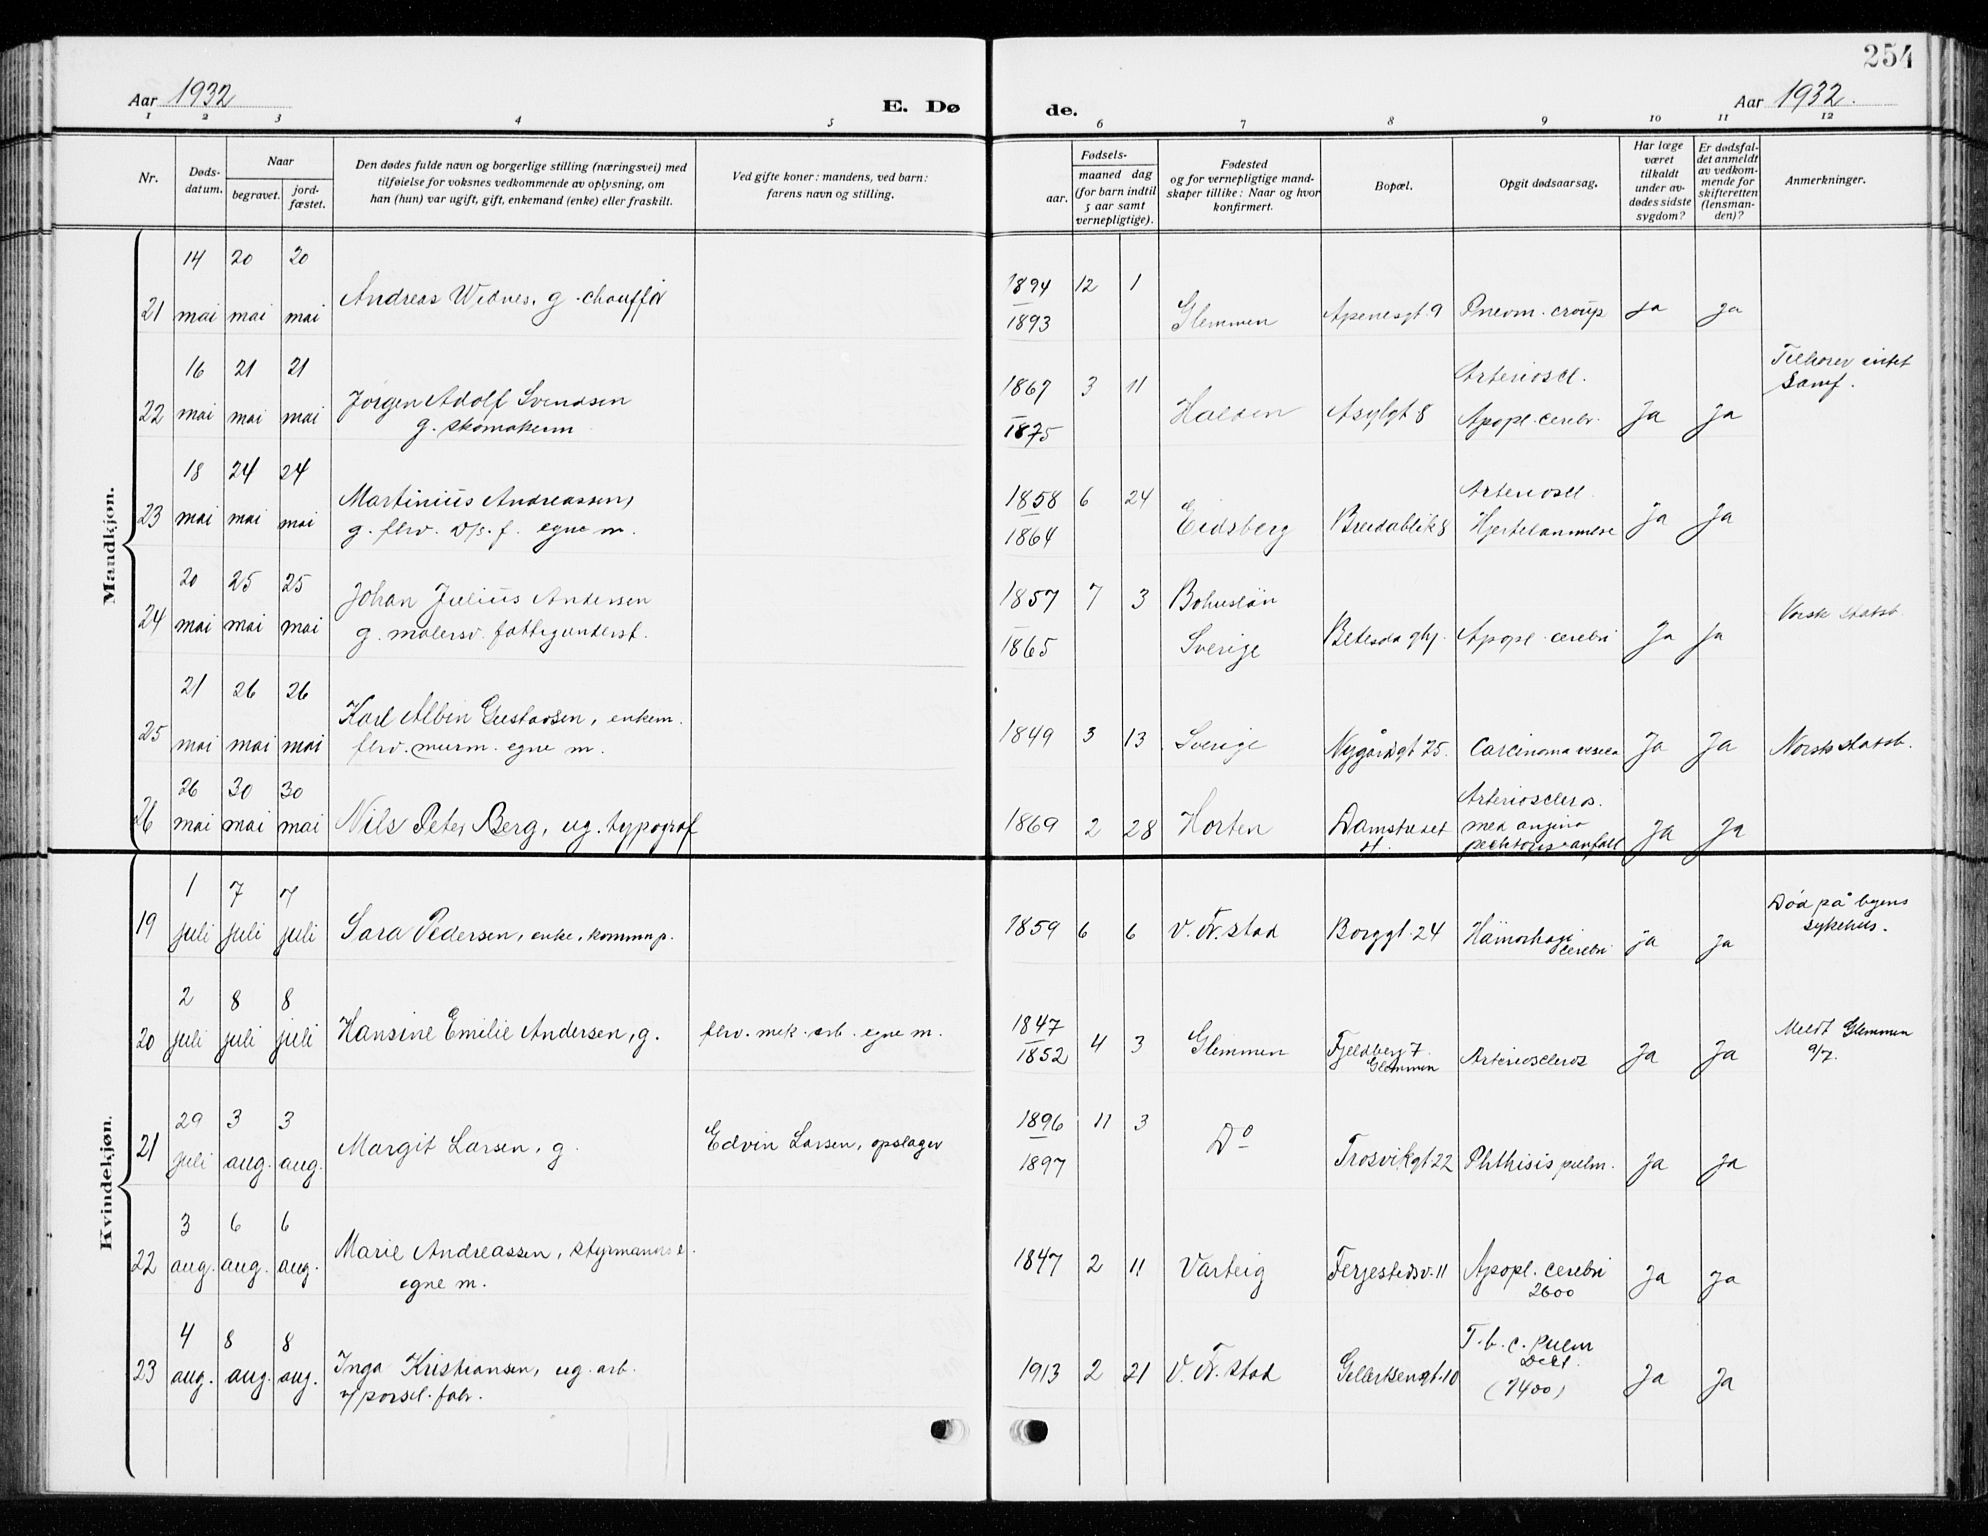 254
Aar 1932
E. Dø
de.
Aar 1932.
1 2 3 4 5 6 7 8 9 10 11 12
Nr.
Døds-
datum.
Naar
begravet.
jord-
fæstet.
Den dødes fulde navn og borgerlige stilling (næringsvei) med
tilføielse for voksnes vedkommende av oplysning, om
han (hun) var ugift, gift, enkemand (enke) eller fraskilt.
Ved gifte koner: mandens, ved barn:
farens navn og stilling.
Fødsels-
aar.
maaned dag
(for barn indtil
5 aar samt
vernepligtige).
Fødested
og for vernepligtige mand-
skaper tillike: Naar og hvor
konfirmert.
Bopæl.
Opgit dødsaarsag.
Har læge
været
tilkaldt
under av-
dødes sidste
sygdom?
Er dødsfal-
det anmeldt
av vedkom-
mende for
skifteretten
(lensman-
den)?
Anmerkninger.
Mandkjøn.
14 20 20
21 mai mai mai
Andreas Widnes, g. chauffør
1894 12 1
1893
Glemmen
Apenesgt. 9
Pnevm. croup
Ja Ja
16 21 21
22 mai mai mai
Jørgen Adolf Svendsen
g. skomakerm
1867 3 11
1875
Halden
Asylgt 8
Arterioscl.
Apopl. cerebr.
Ja Ja
Tilhører intet
Samf.
18 24 24
23 mai mai mai
Martinius Andreassen,
g. fhv. d/s. f. egne m.
1858 6 24
1864
Eidsberg
Breidablik 8
Arterioscl
Hjertelammelse
Ja Ja
20 25 25
24 mai mai mai
Johan Julius Andersen
g. malersv. fattigunderst.
1857 7 3
1865
Bohuslän
Sverige
Betesda glhj.
Apopl. cerebri
Ja Ja
Norsk statsb.
21 26 26
25 mai mai mai
Karl Albin Gustavsen, enkem.
fhv. murm. egne m.
1849 3 13
Sverige
Nygårdsgt 25.
Carcinoma vesica
Ja Ja
Norsk statsb.
26 30 30
26 mai mai mai
Nils Peter Berg, ug. typograf
1869 2 28
Horten
Damstredet
4.
Arterioscleros.
med angina
pectoris-anfall
Ja Ja
Kvindekjøn.
1 7 7
19 juli juli juli
Sara Pedersen, enke, kommunp.
1859 6 6
V. Fr. stad
Borggt. 24
Hämorhagi
cerebri
ja ja
Død på byens
sykehus.
2 8 8
20 juli juli juli
Hansine Emilie Andersen, g.
fhv. mek. arb. egne m.
1847
1852 4 3
Glemmen
Fjeldberg 7.
Glemmen
Arterioscleros
Ja Ja
Meldt Glemmen
9/7.
29 3 3
21 juli aug. aug.
Margit Larsen, g.
Edvin Larsen, opslager
1896 11 3
1897
Do
Trosvikgt. 22
Phthisis pulm.
Ja Ja
3 6 6
22 aug. aug. aug.
Marie Andreassen, styrmannse.
egne m.
1847 2 11
Varteig
Ferjestedsv. 11
Apopl. cerebri
2600
Ja Ja
4 8 8
23 aug. aug. aug.
Inga Kristiansen, ug. arb.
v/ porsel. fabr.
1913 2 21
V. Fr. stad
Gellertsengt. 10
T.b.c. pulm
(7400)
Ja Ja